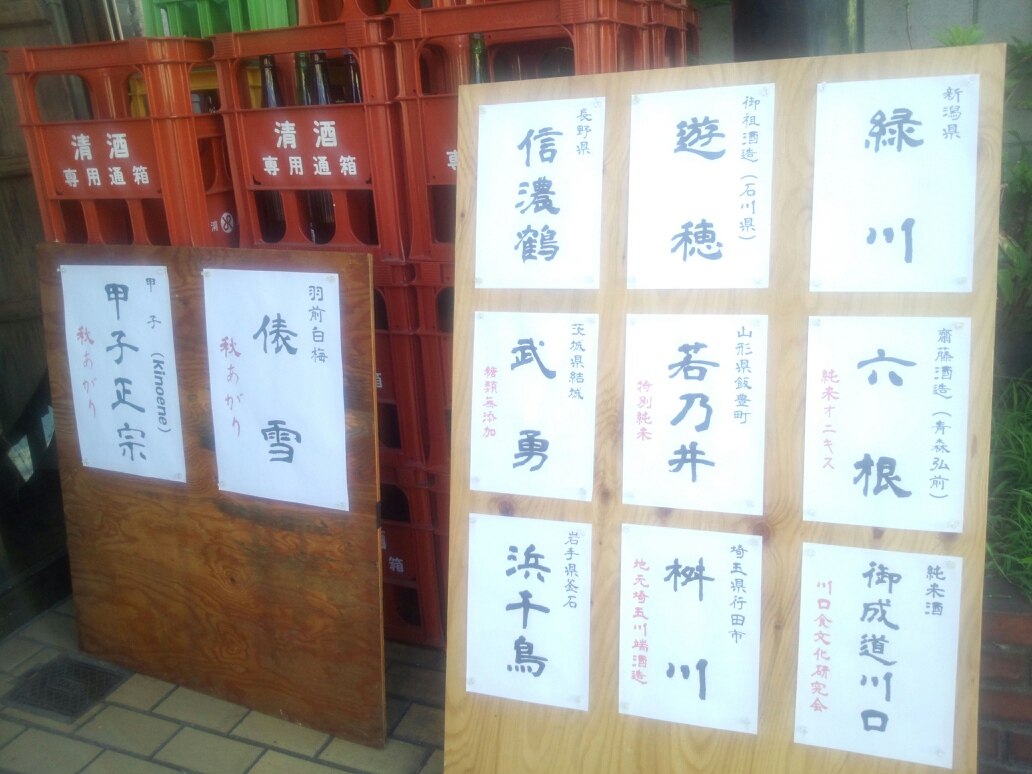 清酒
専用通箱
清酒
専用通箱
専
甲子 (Kinoene)
甲子正宗
秋あがり
羽前白梅
俵雪
秋あがり
長野県
信濃鶴
御祖酒造(石川県)
遊穂
新潟県
緑川
茨城県結城
武勇
糖類無添加
山形県飯豊町
若乃井
特別純米
齋藤酒造(青森弘前)
六根
純米オニキス
岩手県釜石
浜千鳥
埼玉県行田市
桝川
地元埼玉川端酒造
純米酒
御成道川口
川口食文化研究会